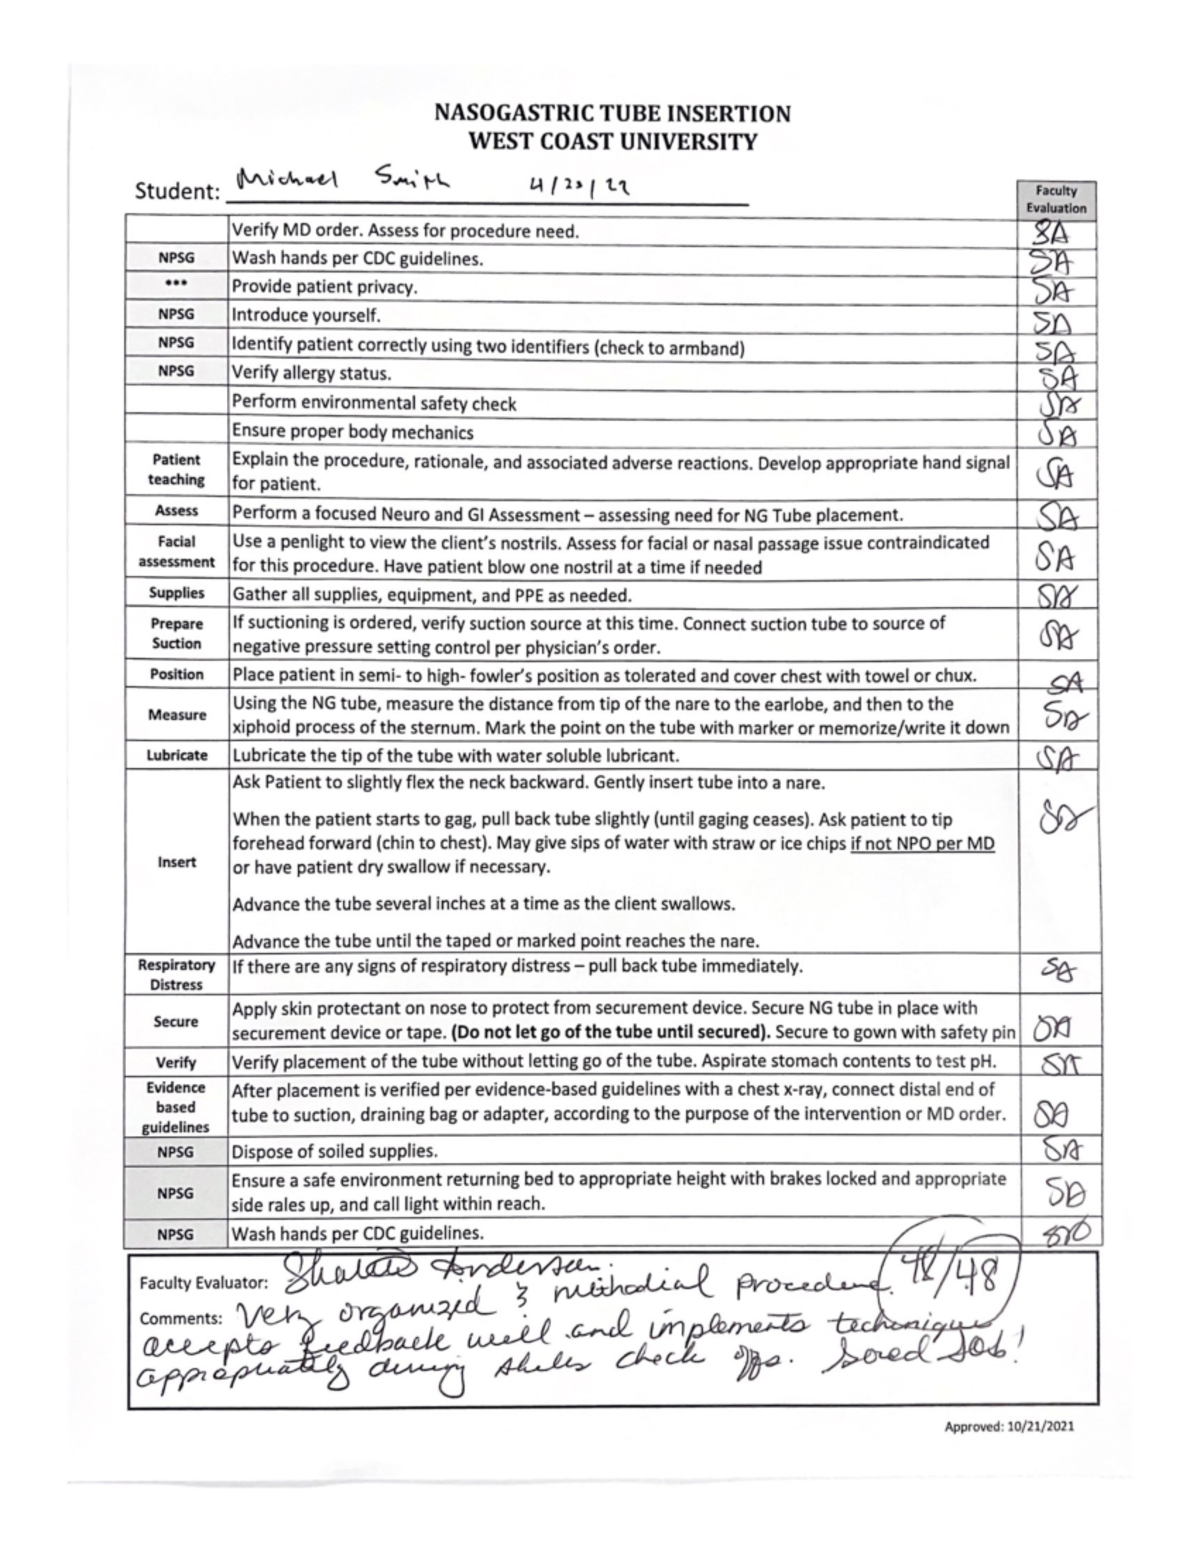 NASOGASTRIC TUBE INSERTION
WEST COAST UNIVERSITY
Student: Michael Smith 4/23/22
Faculty
Evaluation
Verify MD order. Assess for procedure need. SA
NPSG Wash hands per CDC guidelines. SA
*** Provide patient privacy. SA
NPSG Introduce yourself. SA
NPSG Identify patient correctly using two identifiers (check to armband) SA
NPSG Verify allergy status. SA
Perform environmental safety check SA
Ensure proper body mechanics SA
Patient teaching Explain the procedure, rationale, and associated adverse reactions. Develop appropriate hand signal
for patient. SA
Assess Perform a focused Neuro and GI Assessment – assessing need for NG Tube placement. SA
Facial assessment Use a penlight to view the client's nostrils. Assess for facial or nasal passage issue contraindicated
for this procedure. Have patient blow one nostril at a time if needed SA
Supplies Gather all supplies, equipment, and PPE as needed. SA
Prepare Suction If suctioning is ordered, verify suction source at this time. Connect suction tube to source of
negative pressure setting control per physician's order. SA
Position Place patient in semi- to high- fowler's position as tolerated and cover chest with towel or chux. SA
Measure Using the NG tube, measure the distance from tip of the nare to the earlobe, and then to the
xiphoid process of the sternum. Mark the point on the tube with marker or memorize/write it down SA
Lubricate Lubricate the tip of the tube with water soluble lubricant. SA
Insert Ask Patient to slightly flex the neck backward. Gently insert tube into a nare.
When the patient starts to gag, pull back tube slightly (until gaging ceases). Ask patient to tip SA
forehead forward (chin to chest). May give sips of water with straw or ice chips if not NPO per MD
or have patient dry swallow if necessary.
Advance the tube several inches at a time as the client swallows.
Advance the tube until the taped or marked point reaches the nare.
Respiratory Distress If there are any signs of respiratory distress – pull back tube immediately. SA
Secure Apply skin protectant on nose to protect from securement device. Secure NG tube in place with
securement device or tape. (Do not let go of the tube until secured). Secure to gown with safety pin SA
Verify Verify placement of the tube without letting go of the tube. Aspirate stomach contents to test pH. SA
Evidence based guidelines After placement is verified per evidence-based guidelines with a chest x-ray, connect distal end of
tube to suction, draining bag or adapter, according to the purpose of the intervention or MD order. SA
NPSG Dispose of soiled supplies. SA
NPSG Ensure a safe environment returning bed to appropriate height with brakes locked and appropriate
side rales up, and call light within reach. SA
NPSG Wash hands per CDC guidelines. SA
Faculty Evaluator: Anderson. 48/48
Comments: Very organized & methodial procedure.
accepts feedback well and implements techniques
appropriately during skills check offs. Good Job!
Approved: 10/21/2021